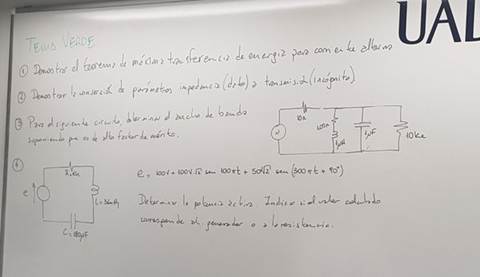 UAL
TEMA VERDE
① Demostrar el teorema de máxima transferencia de energía para corriente alterna
② Demostrar la conversión de parámetros impedancia (dato) a transmisión (incógnita)
③ Para el siguiente circuito, determinar el ancho de banda
suponiendo que es de alto factor de mérito.
10Ω
10kΩ
④
e
C=180pF
e = 100V + 100√2 sen 100πt + 50√2 sen (300πt + 90°)
Determinar la potencia activa. Indicar si el valor calculado
corresponde al generador o a la resistencia.